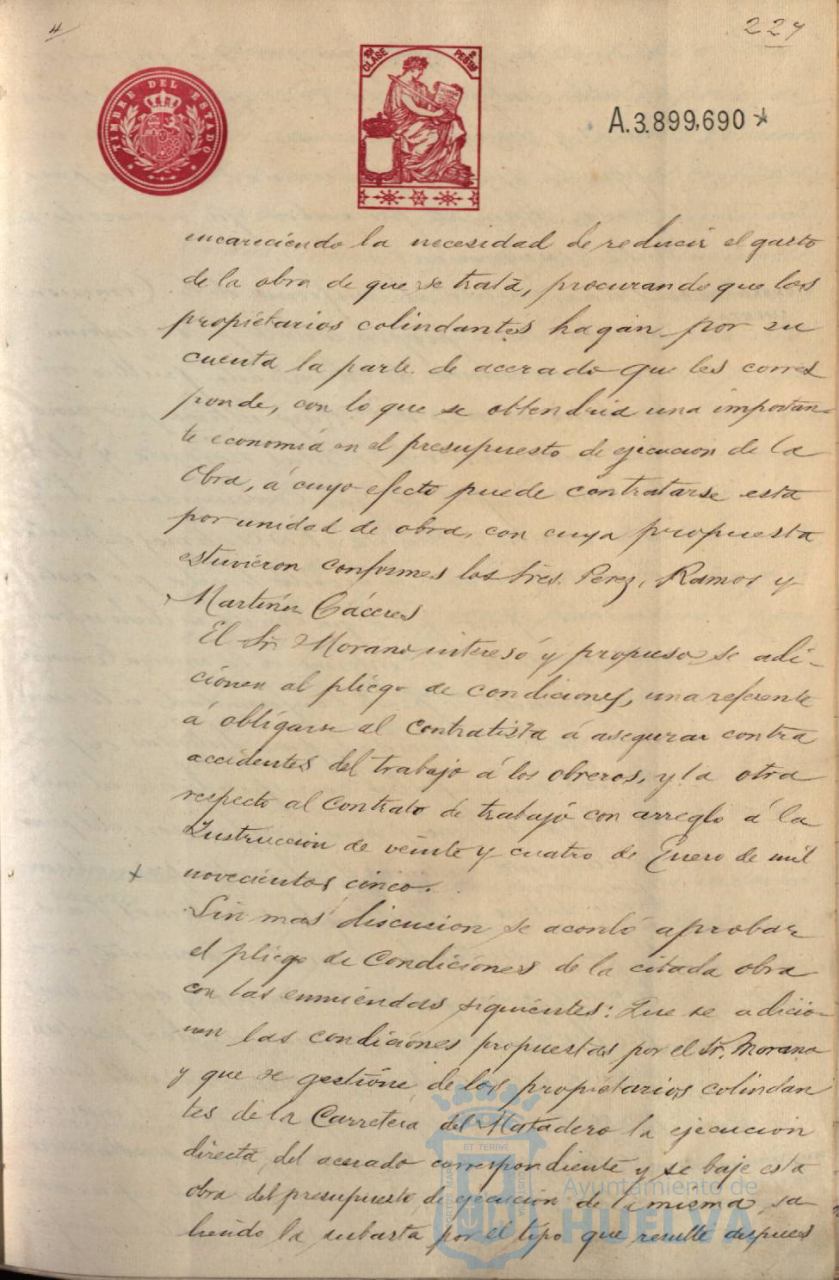 4
227
TIMBRE DEL ESTADO
10ª CLASE
2 PESETAS
A.3.899,690
encareciendo la necesidad de reducir el gasto
de la obra de que se trata, procurando que los
propietarios colindantes hagan por su
cuenta la parte de acerado que les corres
ponde, con lo que se obtendria una importan-
te economia en el presupuesto de ejecucion de la
Obra, á cuyo efecto puede contratarse esta
por unidad de obra, con cuya propuesta
estuvieron conformes los Sres. Perez, Ramos y
Martinez Cáceres
El Sr Morano interesó y propuso se adi-
cionen al pliego de condiciones, una referente
á obligarse al contratista á asegurar contra
accidentes del trabajo á los obreros, y la otra
respecto al contrato de trabajo con arreglo á la
Instruccion de veinte y cuatro de Enero de mil
novecientos cinco.
Sin mas discusion se acordó aprobar
el pliego de Condiciones de la citada obra
con las enmiendas siguientes: Que se adicio-
nen las condiciones propuestas por el Sr. Morano
y que se gestione de los propietarios colindan
tes de la Carretera del Matadero la ejecucion
directa del acerado correspondiente y se baje esta
obra del presupuesto de ejecucion de la misma, sa-
liendo la subasta por el tipo que resulte despues
Ayuntamiento de
HUELVA